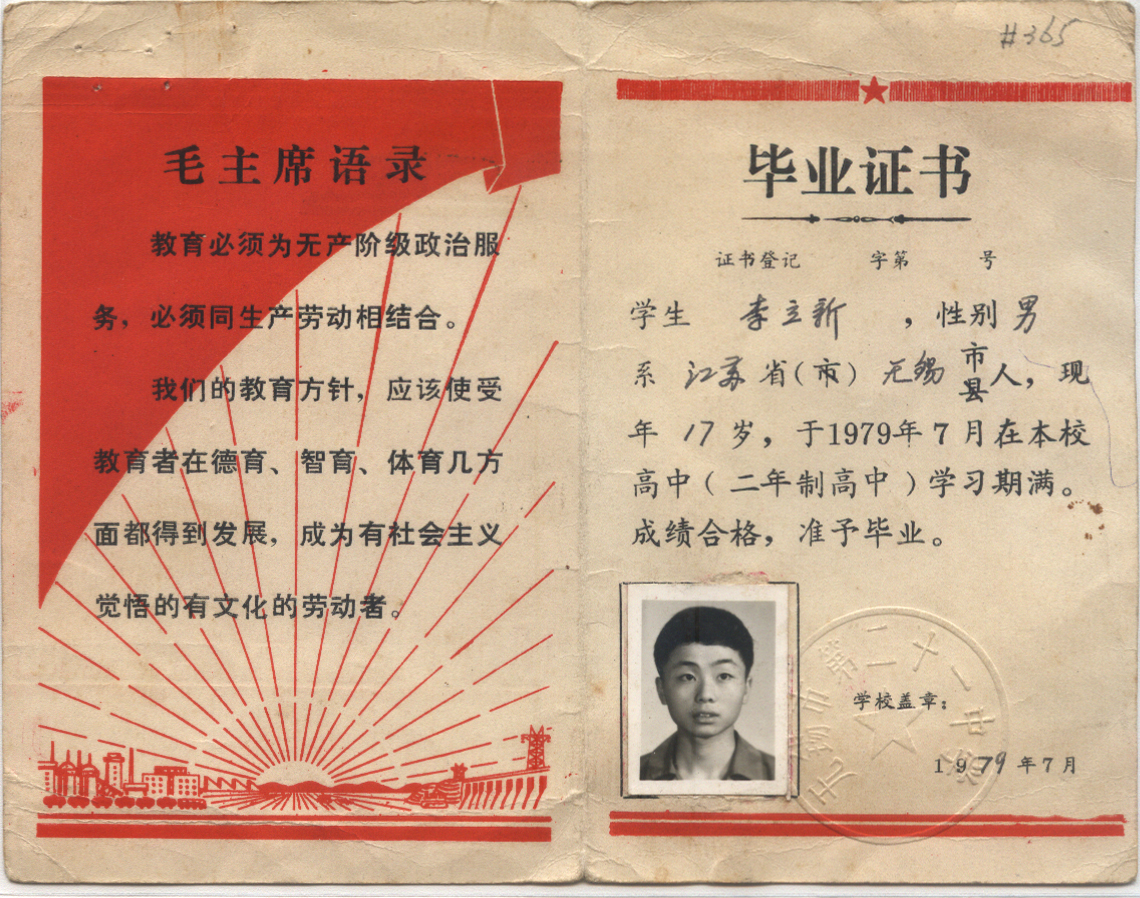 毛主席语录
教育必须为无产阶级政治服
务，必须同生产劳动相结合。
我们的教育方针，应该使受
教育者在德育、智育、体育几方
面都得到发展，成为有社会主义
觉悟的有文化的劳动者。
#365
毕业证书
证书登记 字第 号
学生 李立新 ，性别 男
系 江苏 省（市） 无锡 市县人，现
年 17 岁，于1979年7月在本校
高中（二年制高中）学习期满。
成绩合格，准予毕业。
无锡市第二十一中学
学校盖章：
1979年7月